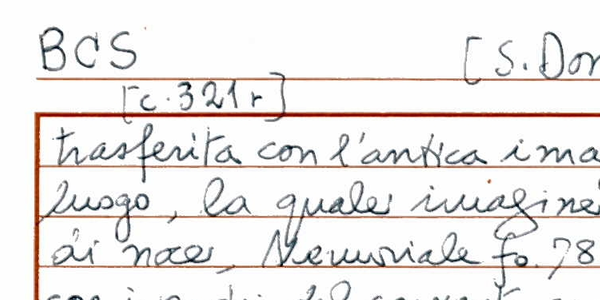 BCS [S. Dom
[c. 321r]
trasferita con l'antica ima
luogo, la quale imagine
di noce, Memoriale fo. 78